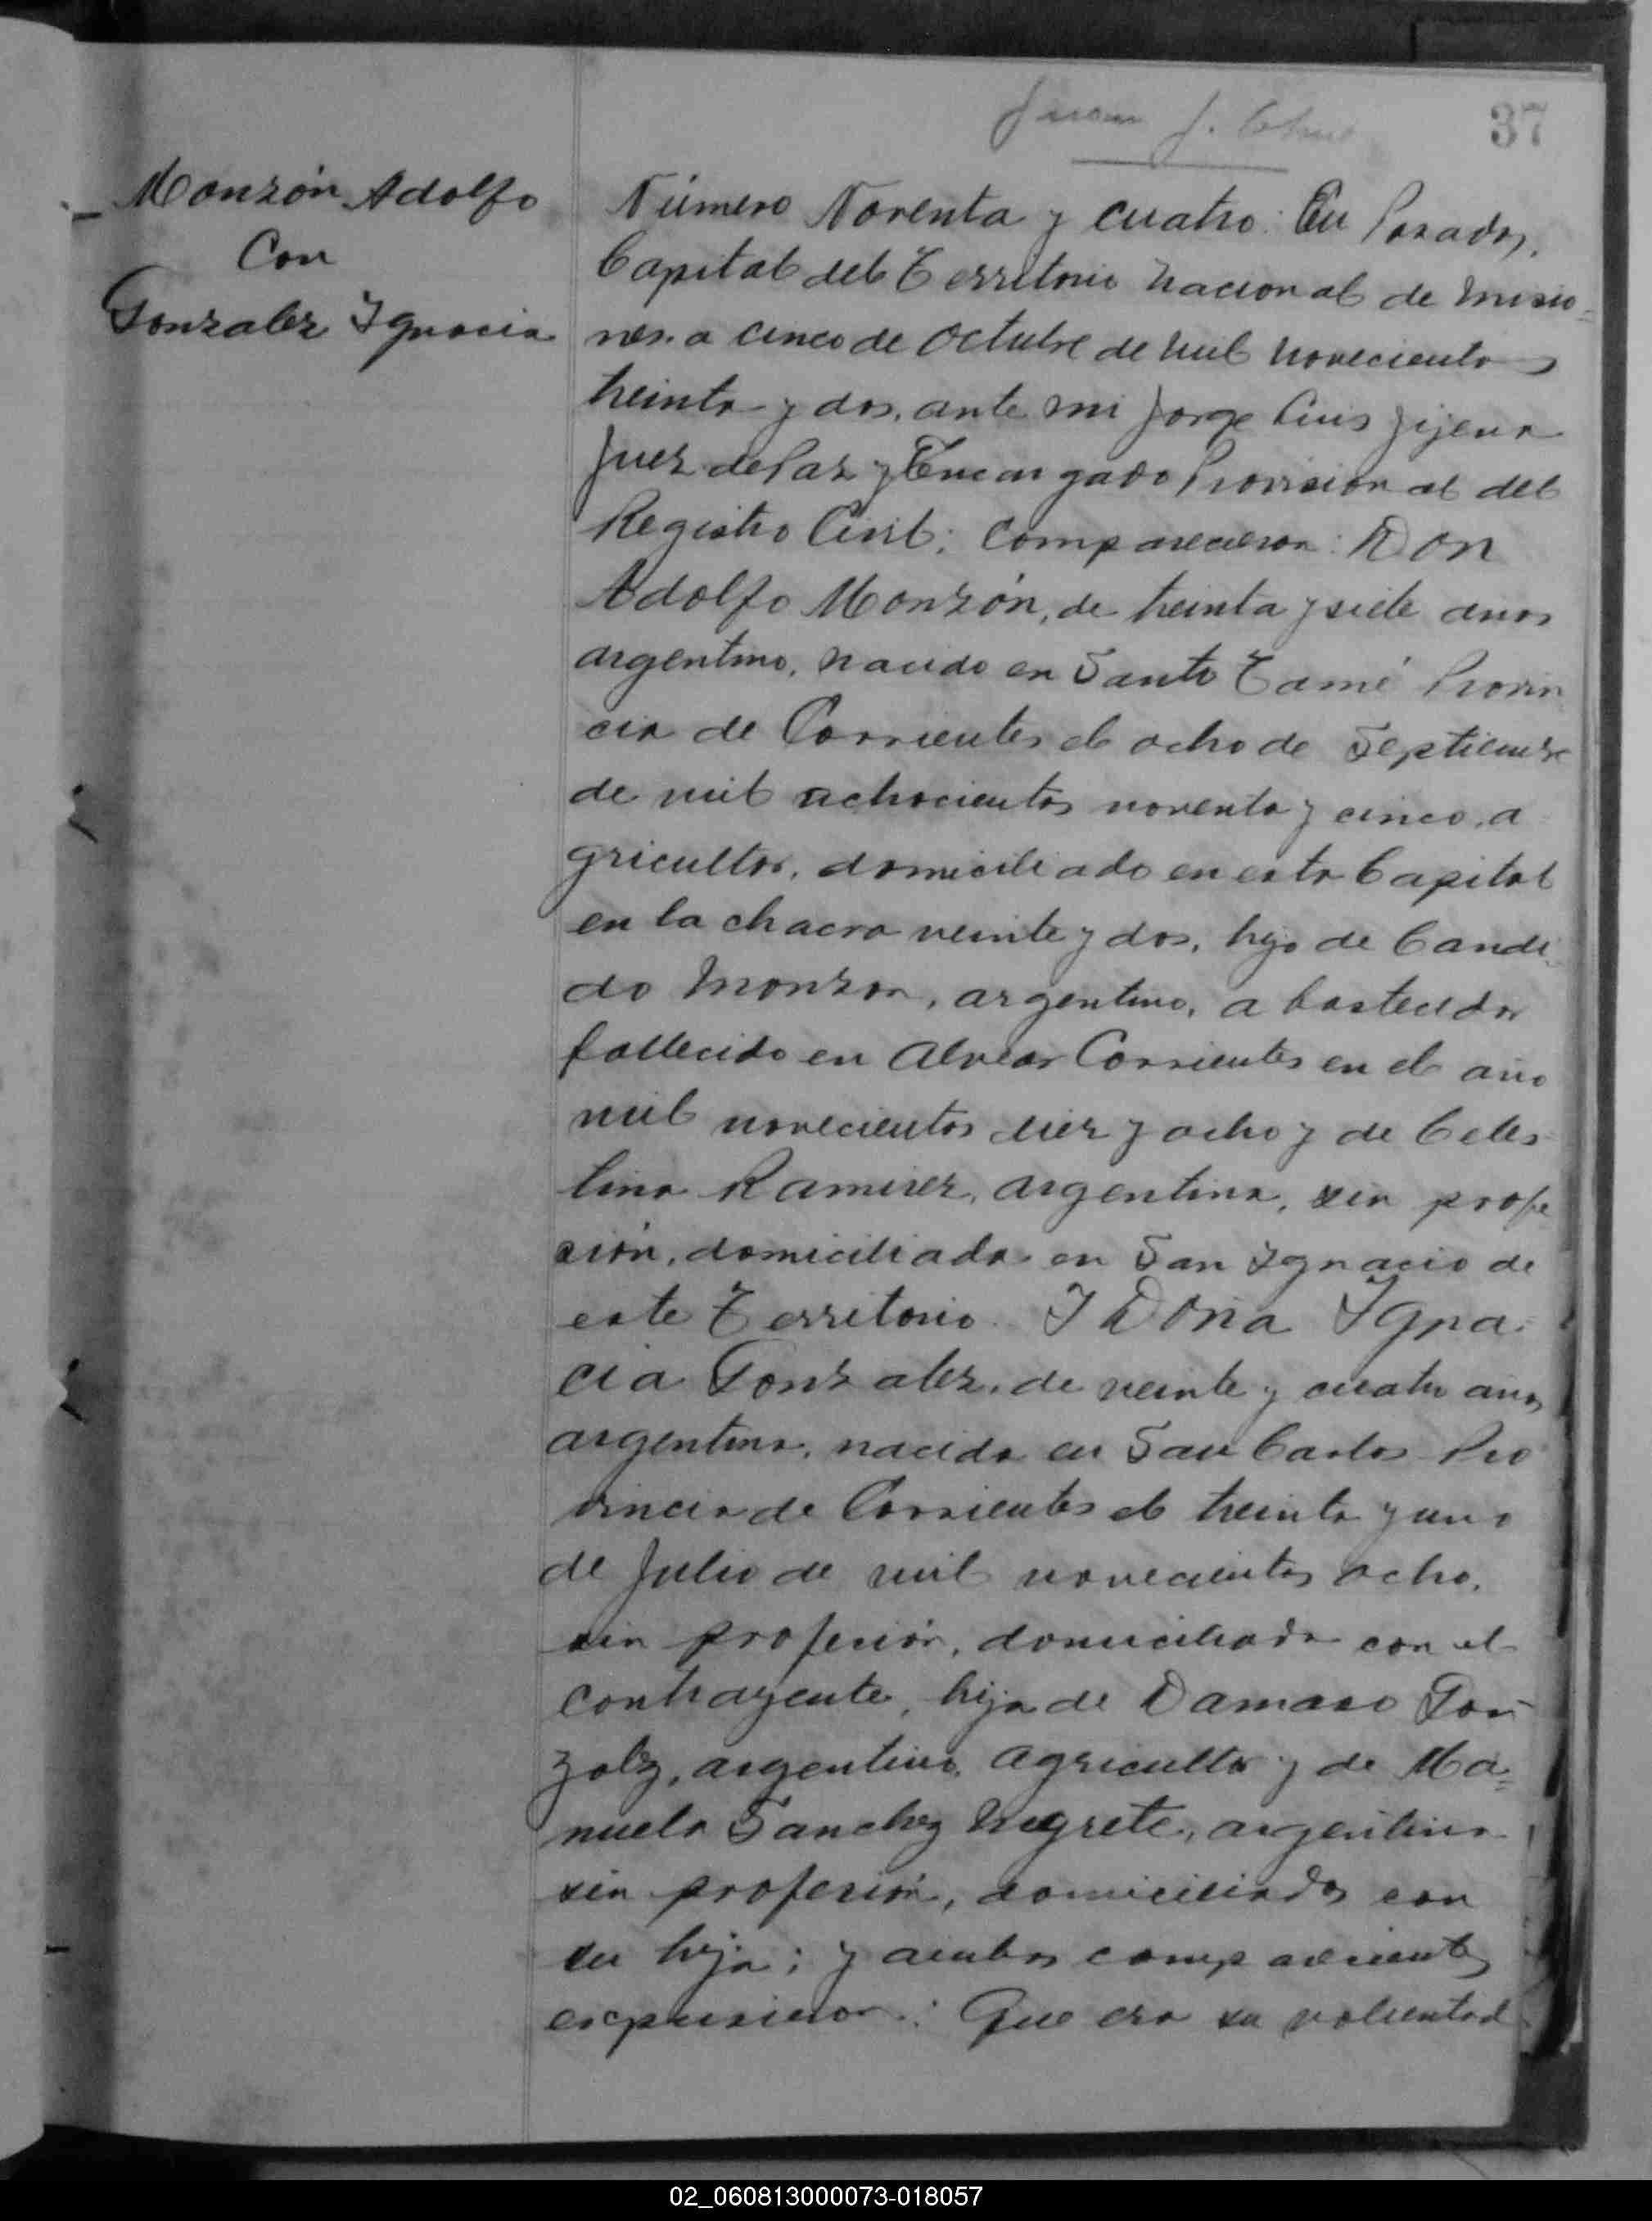 37
Monzón Adolfo
Con
Gonzalez Ignacia
Número Noventa y cuatro: En Posadas,
Capital del Territorio Nacional de Misio=
nes. a cinco de Octubre de mil novecientos
treinta y dos, ante mi Jorge Luis Jijena
Juez de Paz y Encargado Provisional del
Registro Civil; Comparecieron: Don
Adolfo Monzón, de treinta y siete años
argentino, nacido en Santo Tomé Provin
cia de Corrientes el ocho de Septiembre
de mil ochocientos noventa y cinco, a
gricultor, domiciliado en esta Capital
en la chacra veinte y dos, hijo de Candi
do Monzon, argentino, abastecedor
fallecido en Alvear Corrientes en el año
mil novecientos diez y ocho y de Celes
tina Ramirez, argentina, sin profe
sión, domiciliada en San Ignacio de
este Territorio. Y Doña Igna
cia Gonzalez, de veinte y cuatro años
argentina, nacida en San Carlos Pro
vincia de Corrientes el treinta y uno
de Julio de mil novecientos ocho,
sin profesión, domiciliada con el
contrayente, hija de Damaso Gon
zalez, argentino, agricultor y de Ma=
nuela Sanchez Negrete, argentina
sin profesión, domiciliados con
su hija; y ambos comparecientes
expusieron: Que era su voluntad
02_060813000073-018057